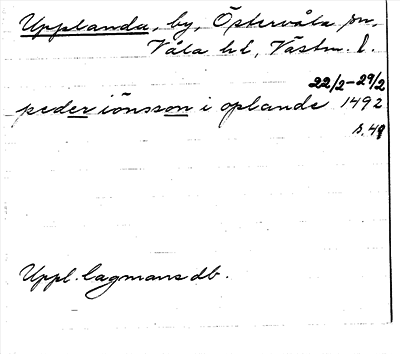 Upplanda, by, Östervåla sn,
Våla hd, Västm. l.
22/2-29/2
peder iönsson i oplande 1492
s. 48
Uppl. lagmans db.